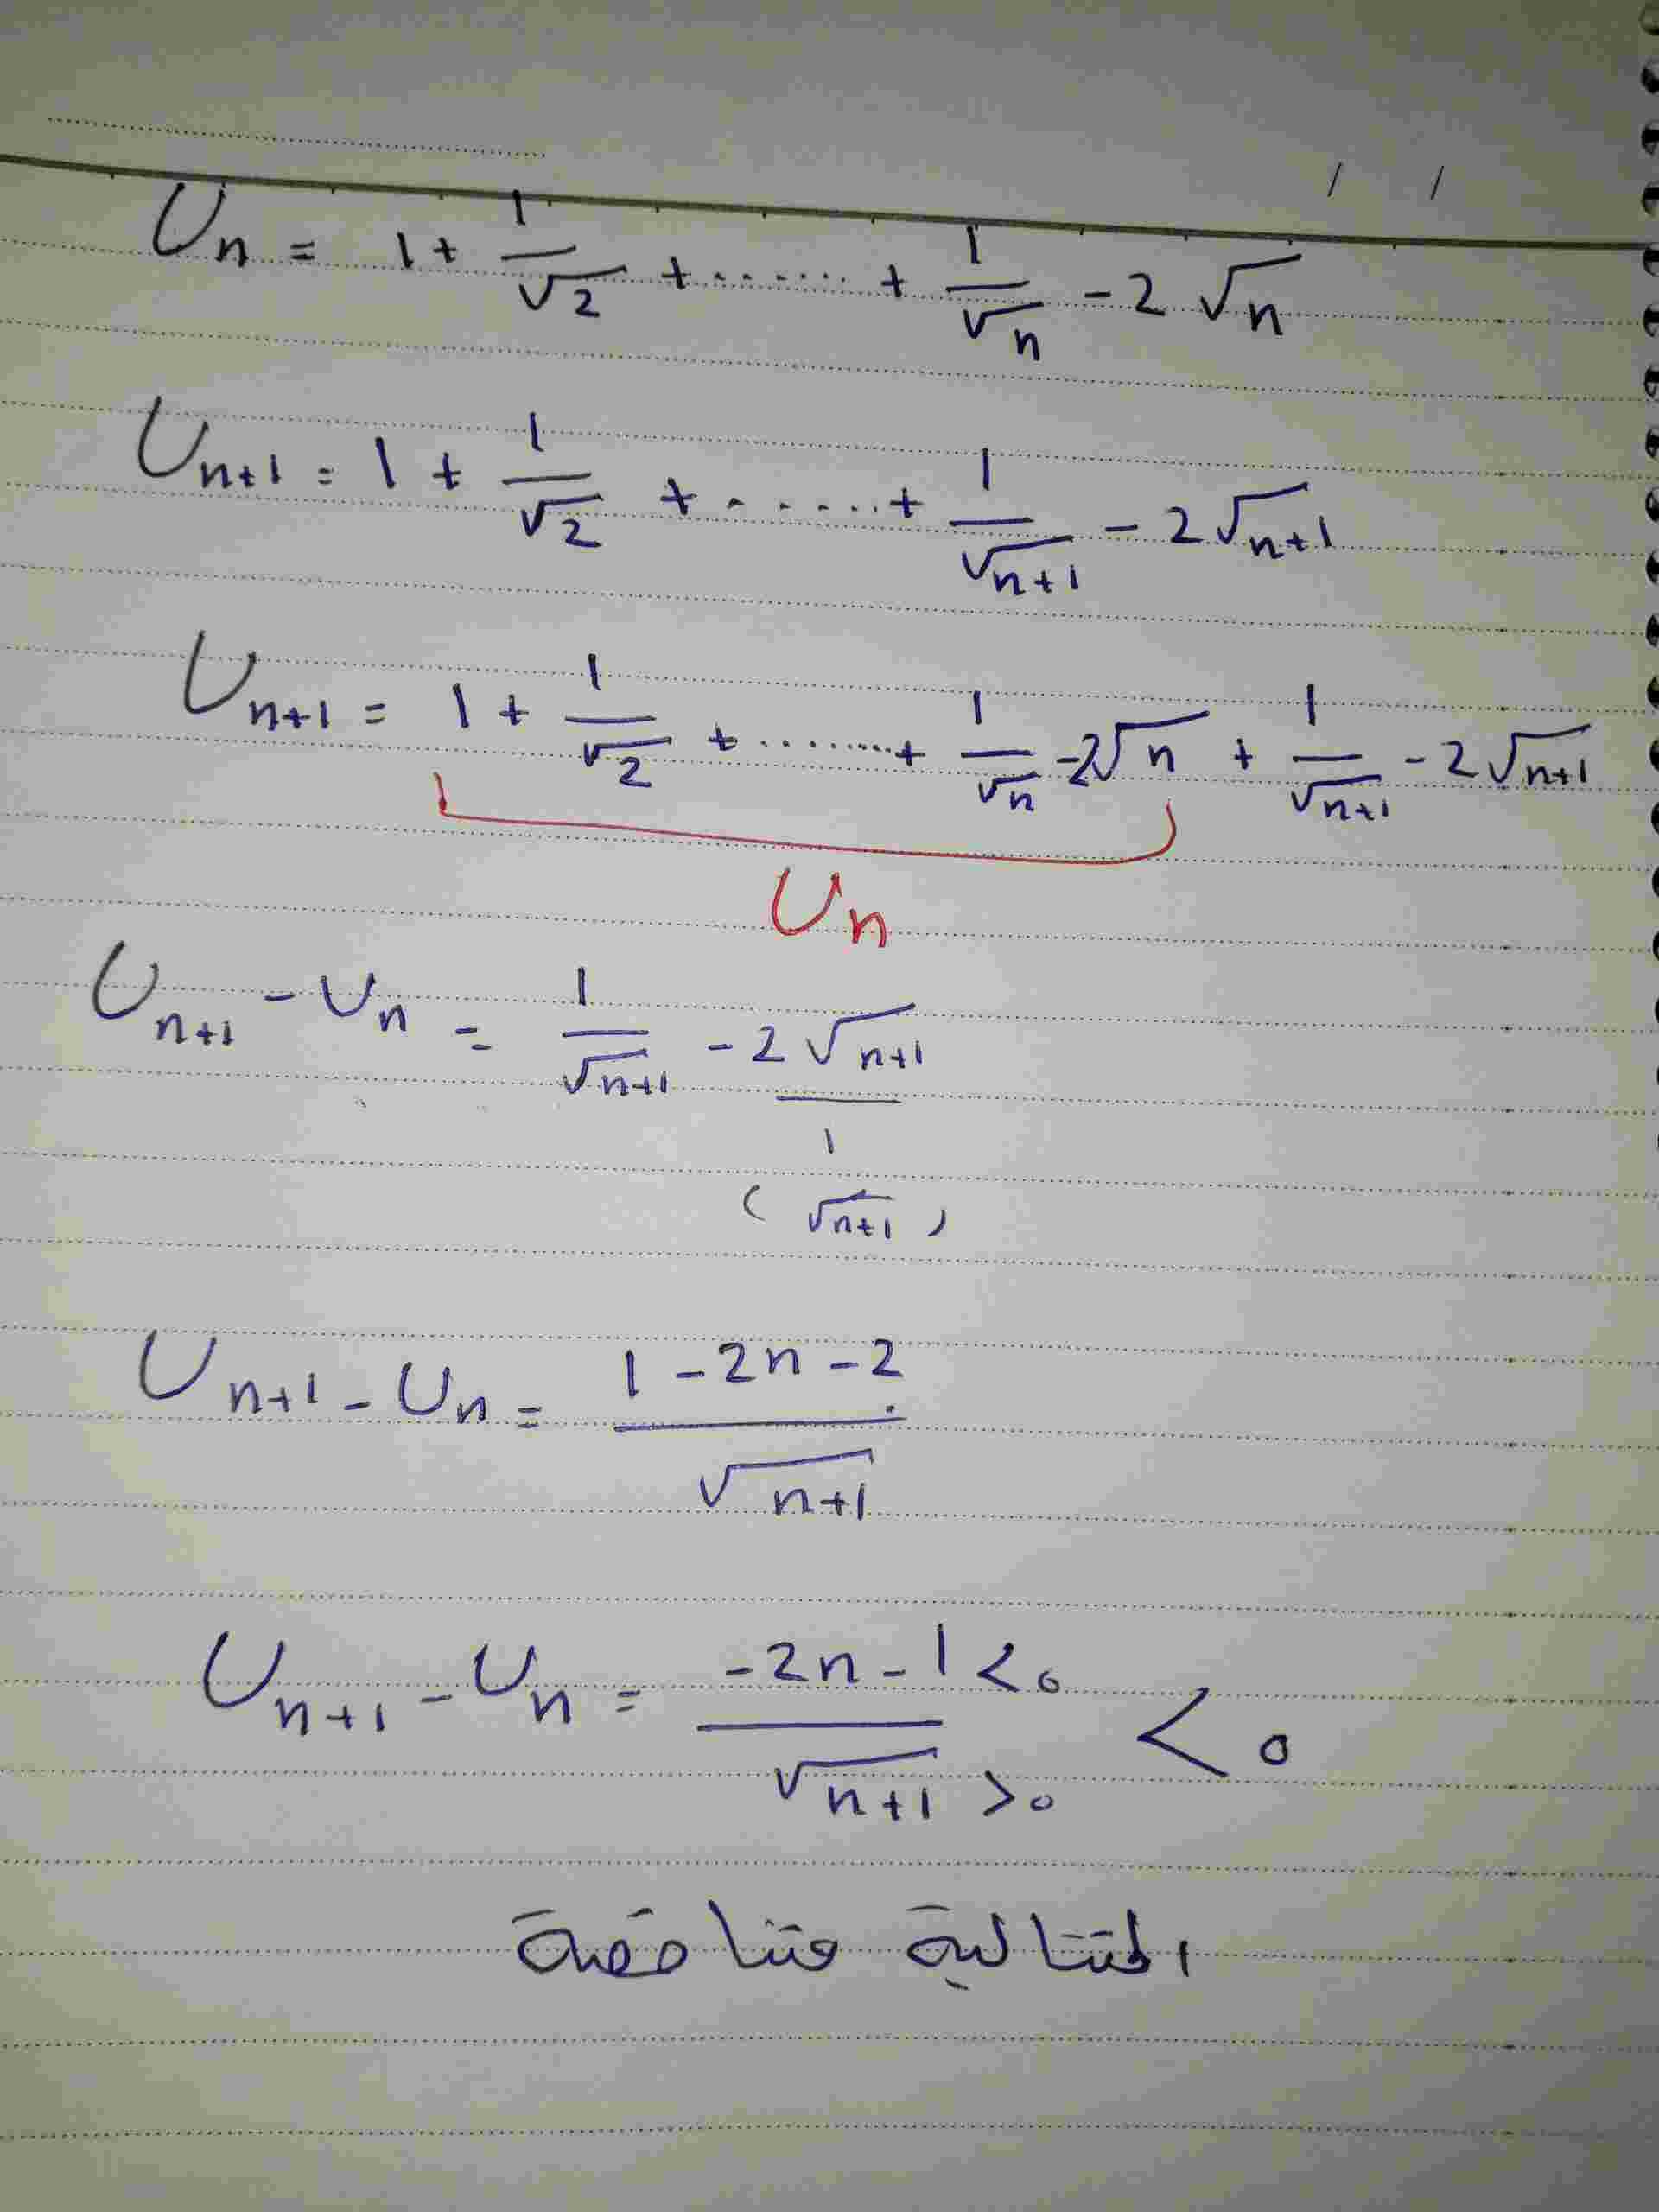 Un = 1 + 1/√2 + ....... + 1/√n - 2√n
Un+1 = 1 + 1/√2 + ...... + 1/√n+1 - 2√n+1
Un+1 = 1 + 1/√2 + ........ + 1/√n - 2√n + 1/√n+1 - 2√n+1
Un
Un+1 - Un = 1/√n+1 - 2√n+1/1
(√n+1)
Un+1 - Un = 1 - 2n - 2/√n+1
Un+1 - Un = -2n - 1 < 0/√n+1 > 0 < 0
المتتالية متناقصة